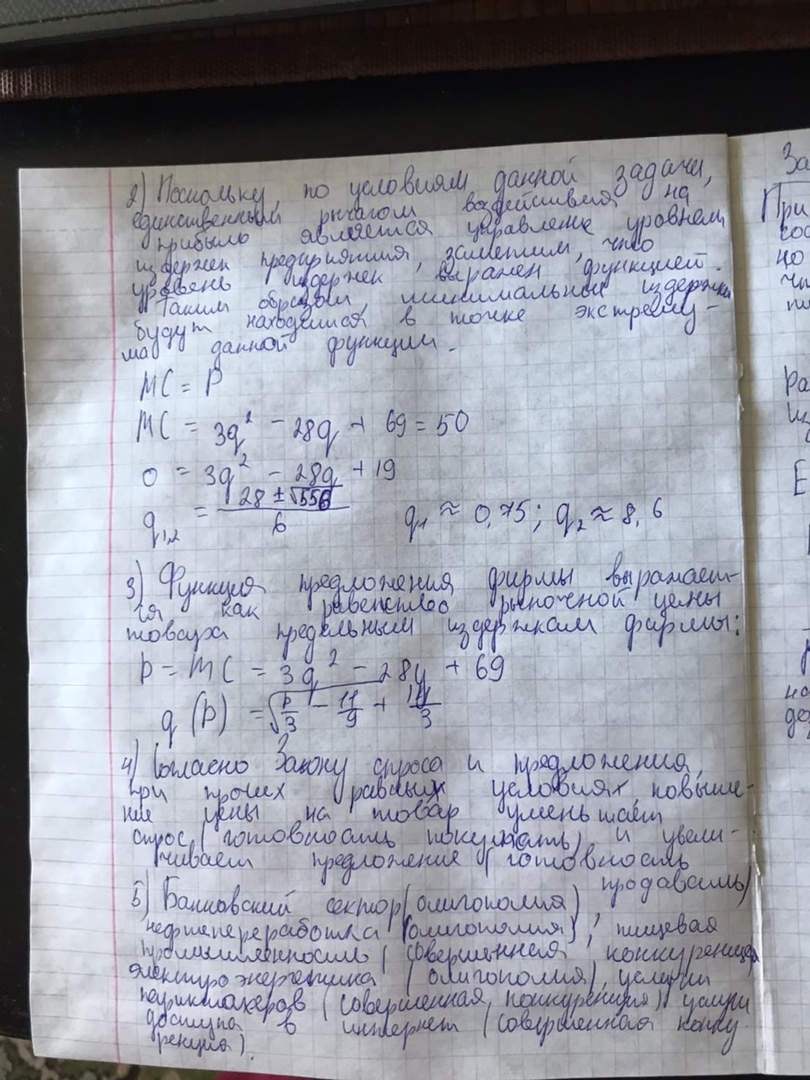 2) Поскольку, по условиям данной задачи,
единственным рычагом воздействия на
прибыль является управление уровнем
издержек предприятия, заметим, что
уровень издержек выражен функцией.
Таким образом, минимальные издержки
будут находиться в точке экстрему-
ма данной функции.
MC = P
MC = 3q² - 28q + 69 = 50
0 = 3q² - 28q + 19
q₁,₂ = (28 ± √556)/6 q₁ ≈ 0,75; q₂ ≈ 8,6
3) Функция предложения фирмы выражает-
ся как равенство рыночной цены
товара предельным издержкам фирмы:
P = MC = 3q² - 28q + 69
q(P) = √(P/3 - 11/9) + 14/3
4) Согласно Закону спроса и предложения,
при прочих равных условиях повыше-
ние цены на товар уменьшает
спрос (готовность покупать) и увели-
чивает предложение (готовность
продавать)
5) Банковский сектор (олигополия),
нефтепереработка (олигополия), пищевая
промышленность (совершенная конкуренция)
электроэнергетика (олигополия), услуги
парикмахеров (совершенная конкуренция) услуги
доступа в интернет (совершенная конку
ренция).
За
При
но
Ра
E